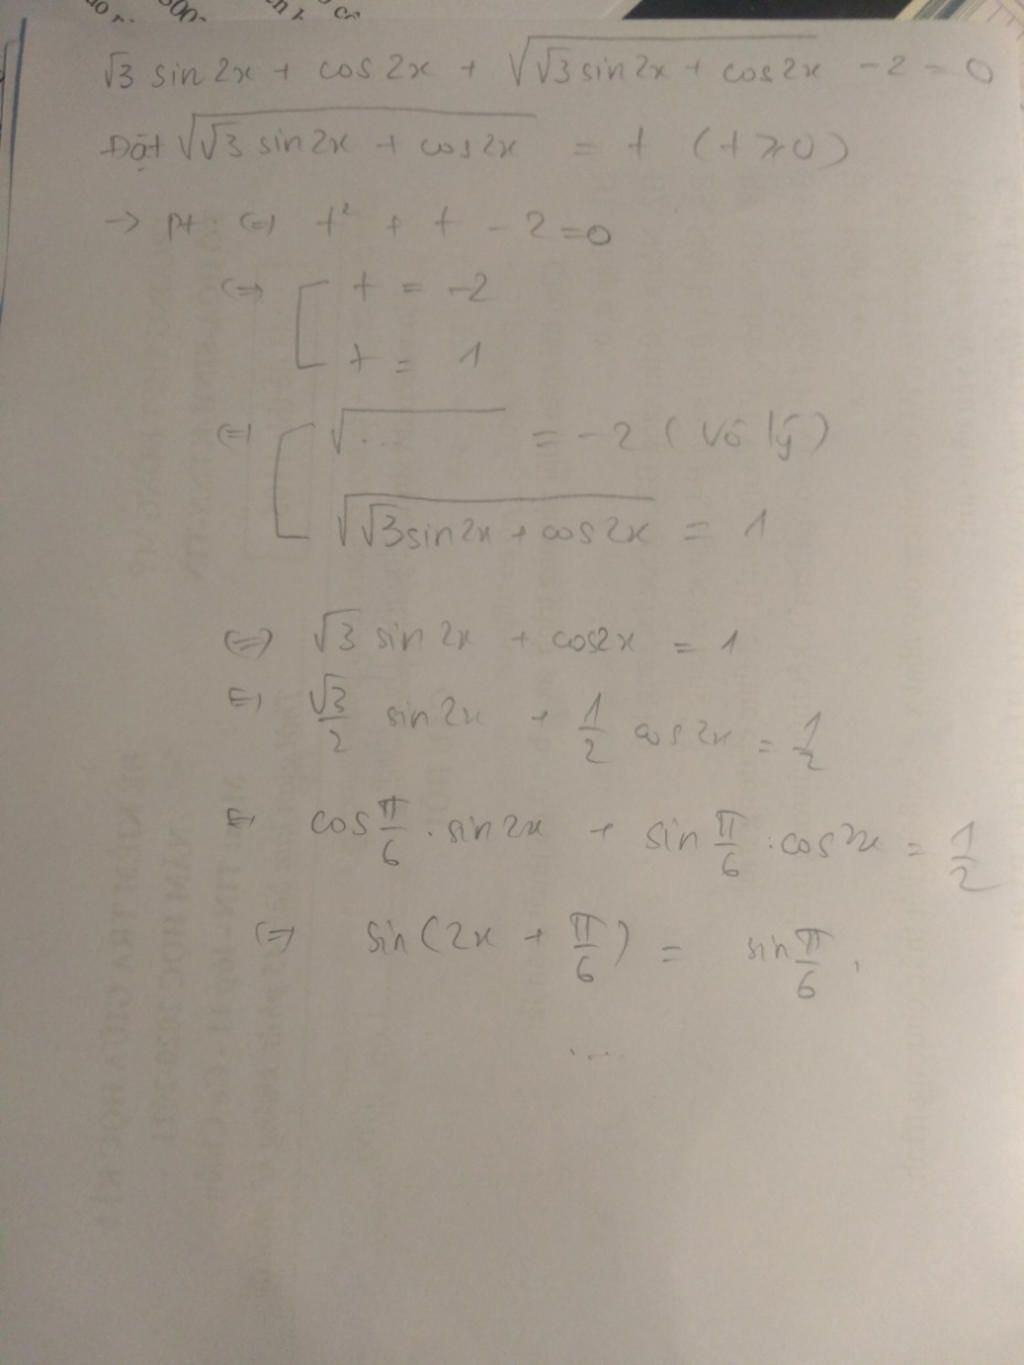 √3 sin2x + cos2x + √(√3 sin2x + cos2x) - 2 = 0
Đặt √(√3 sin2x + cos2x) = t (t ≥ 0)
→ pt (=) t² + t - 2 = 0
(=) [ t = -2
t = 1
(=) [ √... = -2 (vô lý)
√(√3 sin2x + cos2x) = 1
(=) √3 sin2x + cos2x = 1
(=) √3/2 sin2x + 1/2 cos2x = 1/2
(=) cos π/6 . sin2x + sin π/6 . cos2x = 1/2
(=) sin(2x + π/6) = sin π/6 .
....